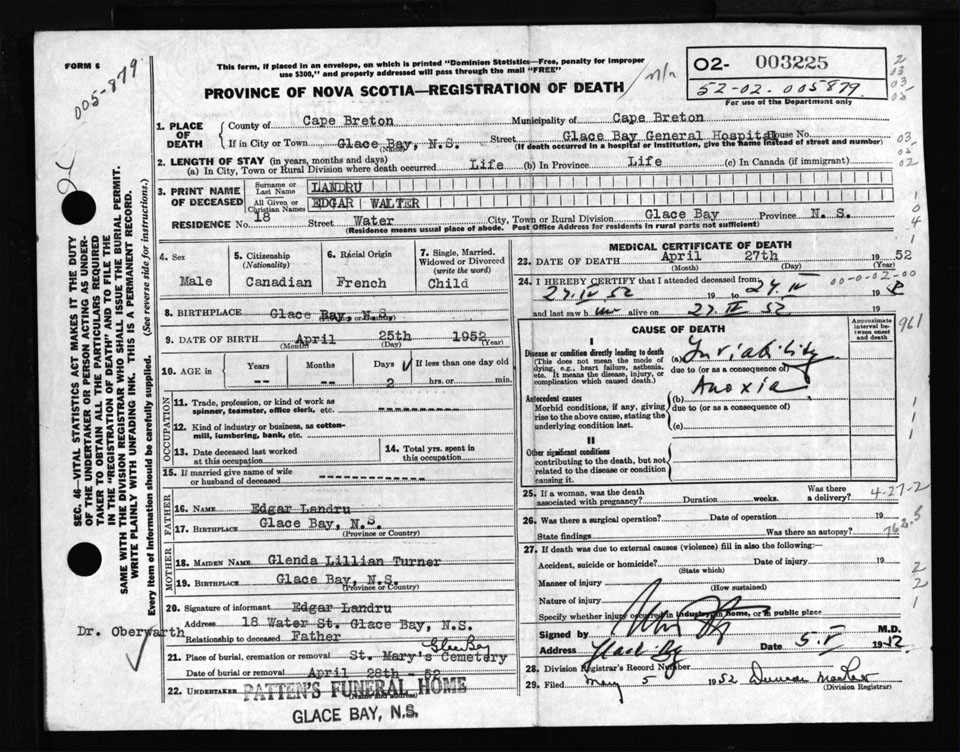 FORM 6
005-879
This form, if placed in an envelope, on which is printed "Dominion Statistics—Free, penalty for improper
use $300," and properly addressed will pass through the mail "FREE"
PROVINCE OF NOVA SCOTIA—REGISTRATION OF DEATH
O2- 003225
52-02-005879
For use of the Department only
1. PLACE OF DEATH
County of Cape Breton Municipality of Cape Breton
If in City or Town Glace Bay, N.S. Street Glace Bay General Hospital House No.
(Name) (If death occurred in a hospital or institution, give the name instead of street and number)
2. LENGTH OF STAY (in years, months and days)
(a) In City, Town or Rural Division where death occurred Life (b) In Province Life (c) In Canada (if immigrant)
3. PRINT NAME OF DECEASED
Surname or Last Name LANDRU
All Given or Christian Names EDGAR WALTER
RESIDENCE No. 18 Street Water City, Town or Rural Division Glace Bay Province N. S.
(Residence means usual place of abode. Post Office Address for residents in rural parts not sufficient)
4. Sex Male
5. Citizenship (Nationality) Canadian
6. Racial Origin French
7. Single, Married, Widowed or Divorced (write the word) Child
8. BIRTHPLACE Glace Bay, N.S.
9. DATE OF BIRTH April 25th 1952
(Month) (Day) (Year)
10. AGE in Years -- Months -- Days 2 If less than one day old hrs. or min.
OCCUPATION
11. Trade, profession, or kind of work as
spinner, teamster, office clerk, etc.
12. Kind of industry or business, as cotton-
mill, lumbering, bank, etc.
13. Date deceased last worked
at this occupation
14. Total yrs. spent in
this occupation
15. If married give name of wife
or husband of deceased
FATHER
16. NAME Edgar Landru
17. BIRTHPLACE Glace Bay, N.S.
(Province or Country)
MOTHER
18. MAIDEN NAME Glenda Lillian Turner
19. BIRTHPLACE Glace Bay, N.S.
(Province or Country)
20. Signature of informant Edgar Landru
Address 18 Water St. Glace Bay, N.S.
Relationship to deceased Father
Dr. Oberwarth
21. Place of burial, cremation or removal St. Mary's Cemetery Glace Bay
Date of burial or removal April 28th - 52
22. UNDERTAKER PATTEN'S FUNERAL HOME
(Name and address)
GLACE BAY, N.S.
MEDICAL CERTIFICATE OF DEATH
23. DATE OF DEATH April 27th 1952
(Month) (Day) (Year)
24. I HEREBY CERTIFY that I attended deceased from
27. IV 52 19 to 27. IV 19
00-0-02-00
and last saw h alive on 27. IV 52 19
CAUSE OF DEATH
Approximate interval between onset and death
I
Disease or condition directly leading to death
(This does not mean the mode of
dying, e.g., heart failure, asthenia,
etc. It means the disease, injury, or
complication which caused death.)
(a)
due to (or as a consequence of)
Anoxia
Antecedent causes
Morbid conditions, if any, giving
rise to the above cause, stating the
underlying condition last.
(b)
due to (or as a consequence of)
(c)
II
Other significant conditions
contributing to the death, but not
related to the disease or condition
causing it.
25. If a woman, was the death
associated with pregnancy? Duration weeks. Was there a delivery?
4-27-2
26. Was there a surgical operation? Date of operation 19
State findings Was there an autopsy?
762.5
27. If death was due to external causes (violence) fill in also the following:—
Accident, suicide or homicide? Date of injury 19
(State which)
Manner of injury
(How sustained)
Nature of injury
Specify whether injury occurred in industry, in home, or in public place
Signed by M.D.
Address Glace Bay Date 5. V 1952
28. Division Registrar's Record Number
29. Filed May 5 1952 Duncan
(Division Registrar)
961
SEC. 46—VITAL STATISTICS ACT MAKES IT THE DUTY
OF THE UNDERTAKER OR PERSON ACTING AS UNDER-
TAKER TO OBTAIN ALL THE PARTICULARS REQUIRED
IN THE "REGISTRATION OF DEATH" AND TO FILE THE
SAME WITH THE DIVISION REGISTRAR WHO SHALL ISSUE THE BURIAL PERMIT.
WRITE PLAINLY WITH UNFADING INK. THIS IS A PERMANENT RECORD.
Every item of information should be carefully supplied. (See reverse side for instructions.)